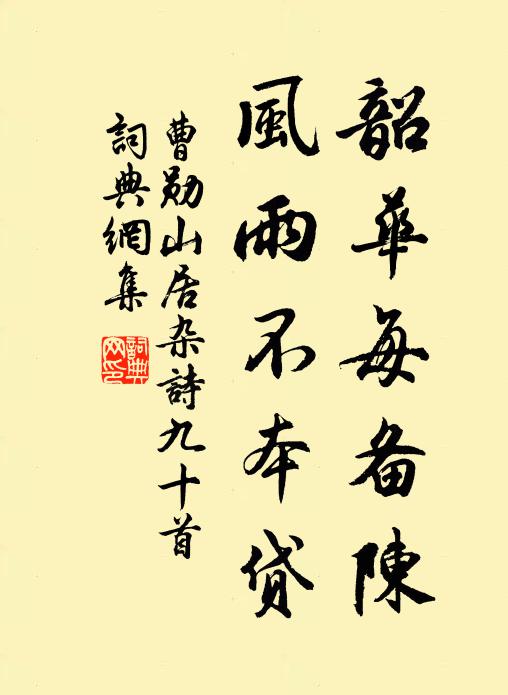 韶華每备陳
風雨不本貸
曹勋山居杂詩九十首
詞典網集
詞典网印